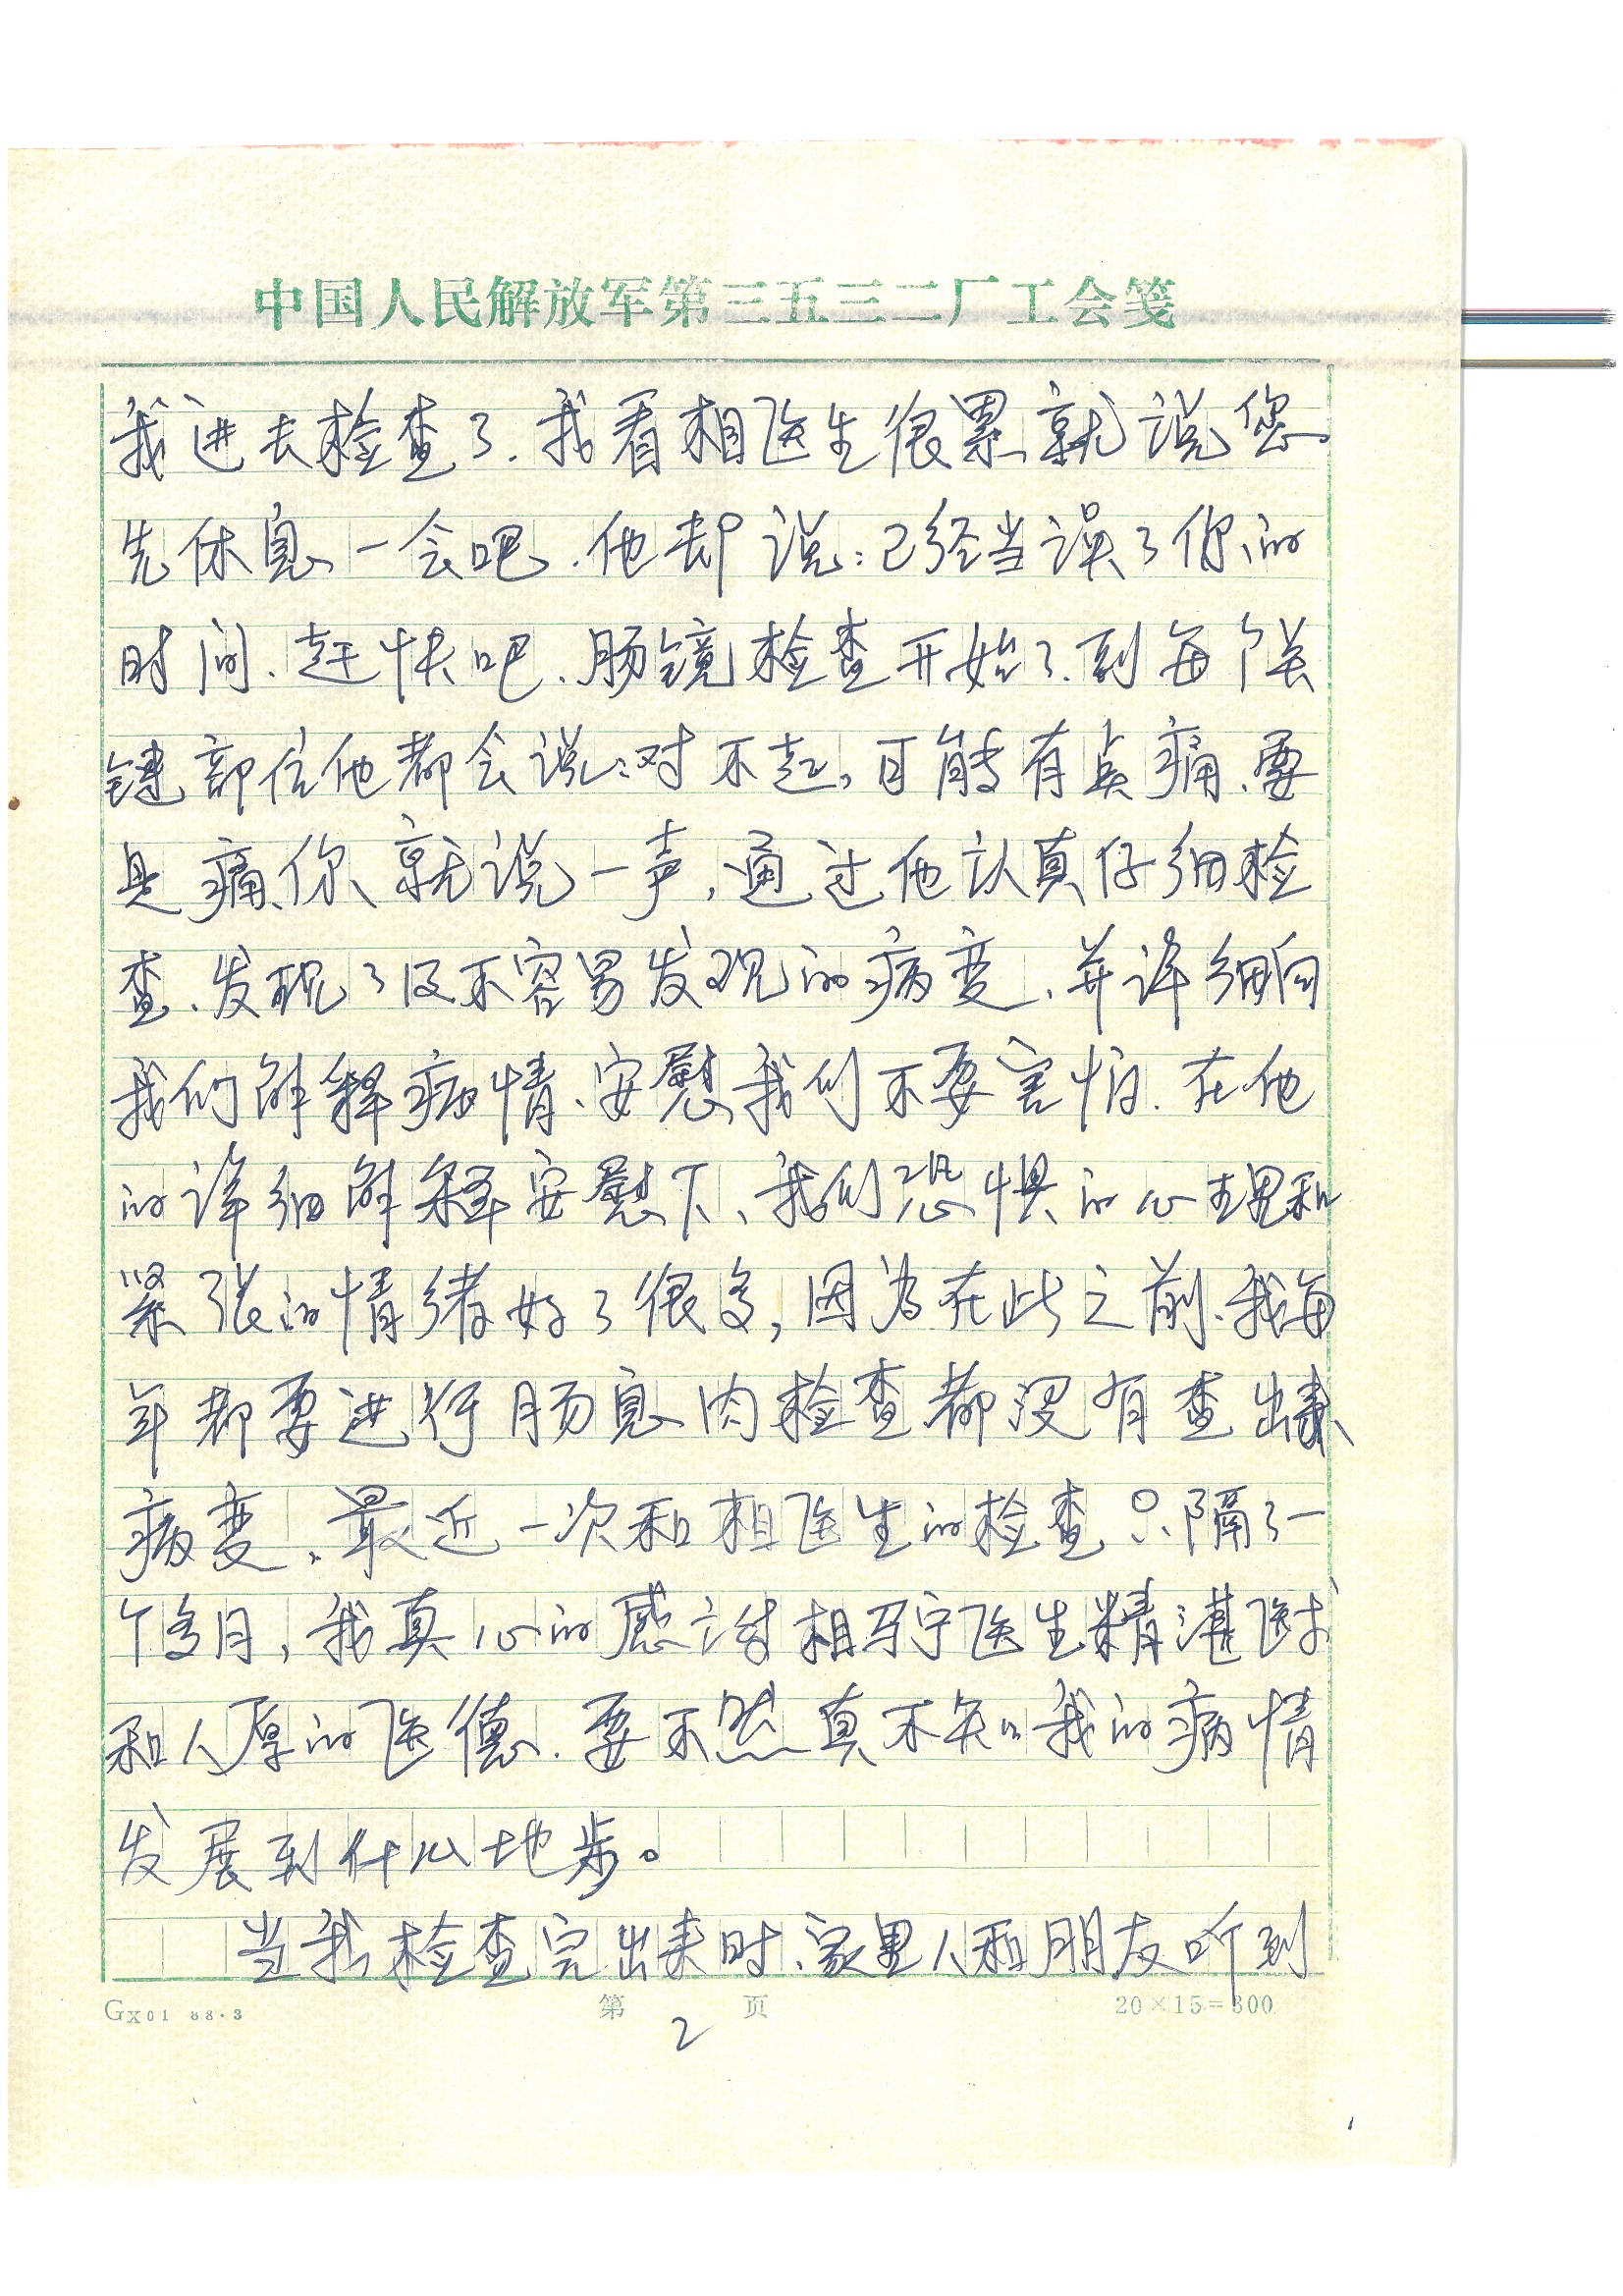 中国人民解放军第三五三二厂工会笺
我进去检查了.我看相医生很累就说您
先休息一会吧.他却说:已经当误了你的
时间.赶快吧、肠镜检查开始了.到每个关
键部位他都会说:对不起,可能有点痛、要
是痛你就说一声,通过他认真仔细检
查、发现了及不容易发现的病变、并详细向
我们解释病情、安慰我们不要害怕.在他
的详细解释安慰下、我们恐惧的心理和
紧张的情绪好了很多,因为在此之前、我每
年都要进行肠息肉检查都没有查出来
病变、最近一次和相医生的检查只隔了一
个多月,我真心的感谢相骏宇医生精湛医术
和人厚的医德.要不然真不知我的病情
发展到什么地步。
当我检查完出来时、家里人和朋友听到
GX01 88·3 第 2 页 20×15=300